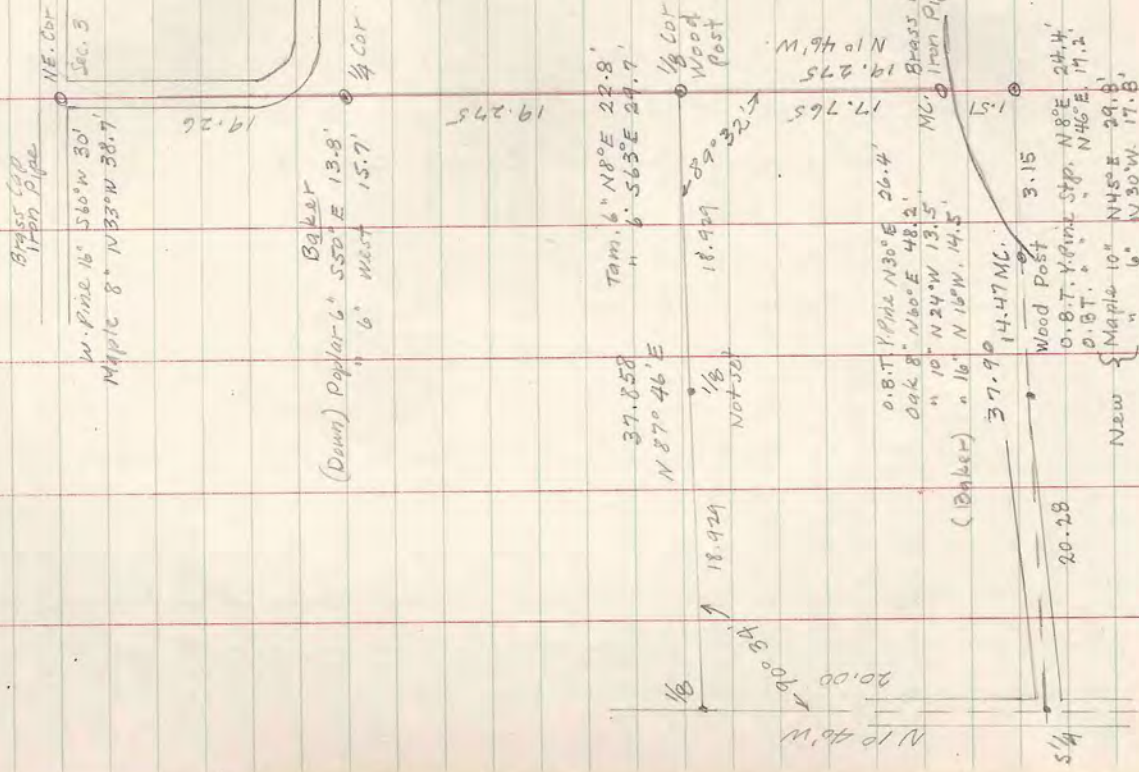 Brass Cap
Iron Pipe
NE. Cor
Sec. 3
W. Pine 16" S60°W 30'
Maple 8" N33°W 38.7'
19.26
1/4 Cor
Baker
(Down) Poplar 6" S50°E 13.8'
" 6" West 15.7'
19.275
Tam. 6" N8°E 22.8'
" 6" S63°E 29.7'
1/8 Cor
Wood
Post
37.858
N 87° 46' E
18.929
89° 32'
1/8
Not set
18.929
1/8
90° 34'
20.00
N 1° 46' W
19.275
N 1° 46' W
17.765
Brass
Iron Pip
MC.
1.51
O.B.T. Y. Pine N30°E 26.4'
Oak 8" N60°E 48.2'
" 10" N24°W 13.5'
(Baker) " 16" N16°W. 14.5'
37.90
14.47 MC.
3.15
Wood Post
O.B.T. Y. Pine Stp. N8°E 24.4'
O.B.T. " " N46°E. 19.2'
New { Maple 10" N45°E 29.8'
" 6" N30°W. 17.8'
20.28
S 1/4